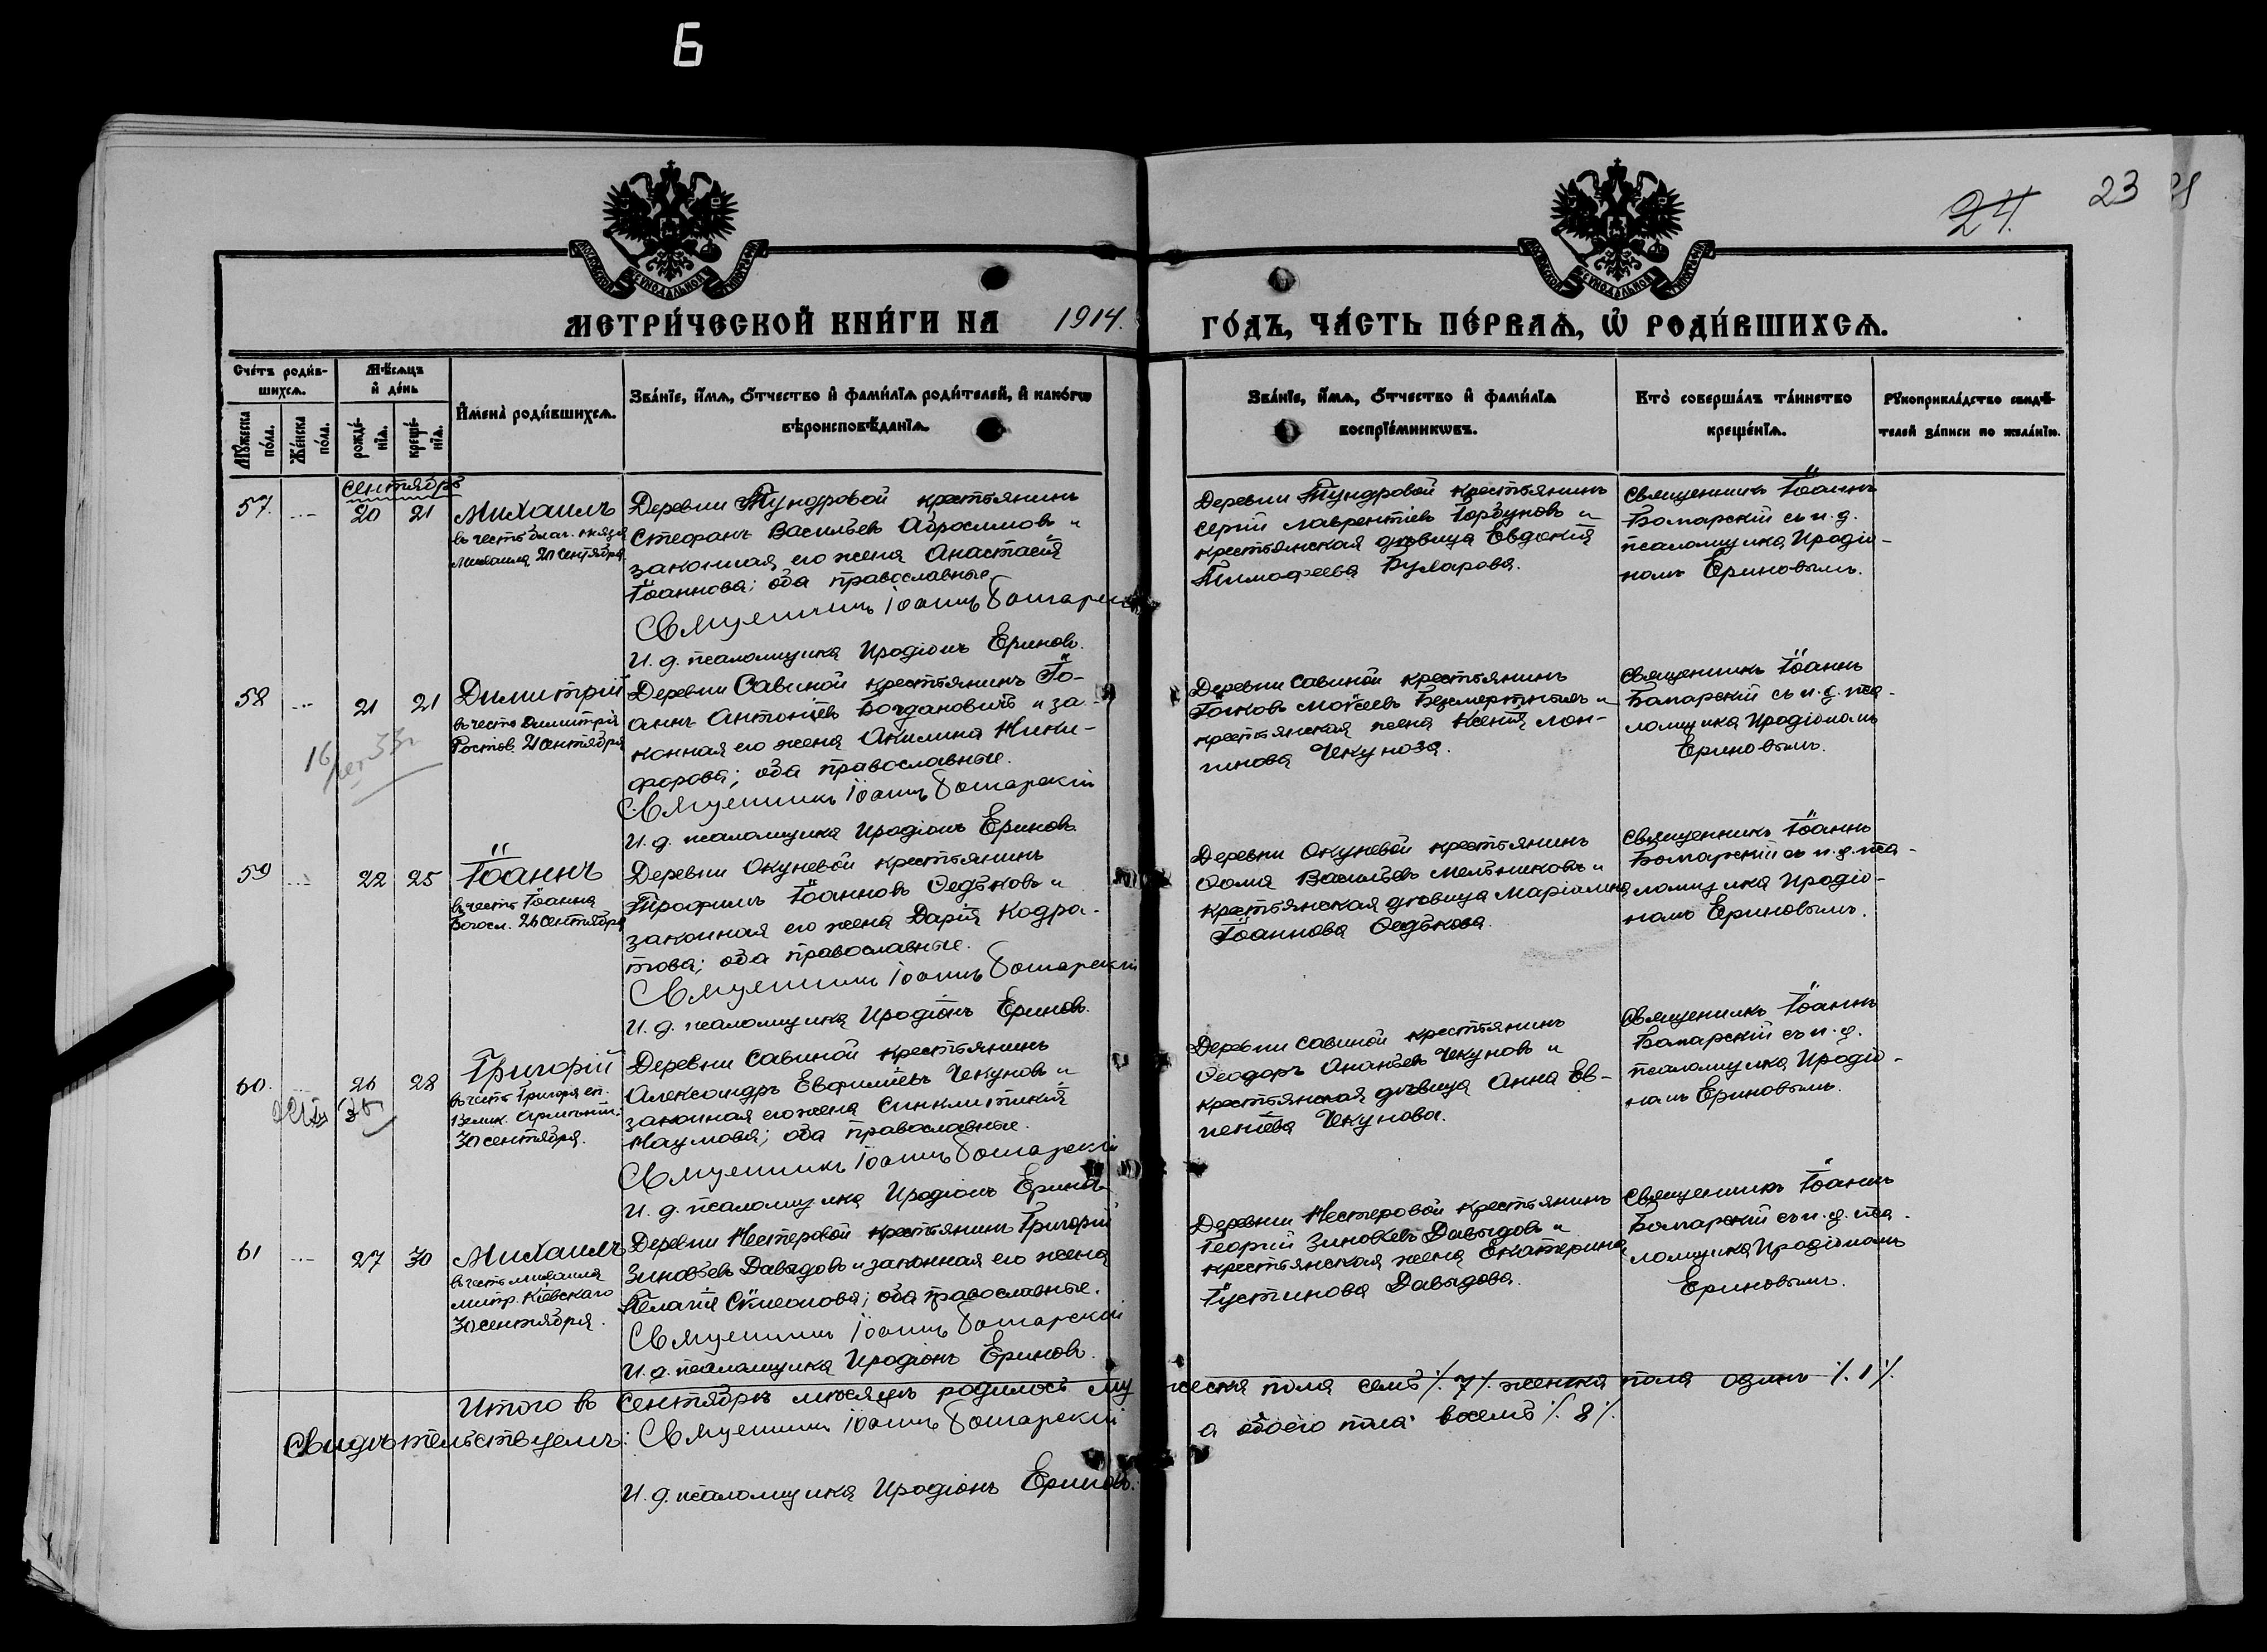 Б
24.
23
МЕТРИ́ЧЕСКОЙ КНИ́ГИ НА 1914. ГО́ДЪ, ЧА́СТЬ ПЕ́РВАѦ, Ѿ РОДИ́ВШИХСѦ.
Сче́тъ роди́в-
шихсѧ.
Мꙋ́жеска
по́ла.
Же́нска
по́ла.
Мѣ́сѧцъ
и҆ де́нь
рожде́-
нїѧ.
креще́-
нїѧ.
И҆мена̀ роди́вшихсѧ.
Зва́нїе, и҆́мѧ, ѻ҆́тчество и҆ фами́лїѧ роди́телей, и҆ како́гѡ
вѣроисповѣ́данїѧ.
Зва́нїе, и҆́мѧ, ѻ҆́тчество и҆ фами́лїѧ
воспрїе́мникѡвъ.
Кто̀ соверша́лъ та́инство
креще́нїѧ.
Рꙋкоприкла́дство свидѣ́-
телей за́писи по жела́нїю.
сентябрь
57. ...
20 21
Михаилъ
въ честь благ. князя
Михаила 20 сентября
Деревни Тундровой крестьянинъ
Стефанъ Васильевъ Абросимовъ и
законная его жена Анастасія
Іоаннова; оба православные.
Священникъ Іоаннъ Бомарскій
И. д. псаломщика Иродіонъ Ериновъ.
Деревни Тундровой крестьянинъ
Сергій Лаврентіевъ Горбуновъ и
крестьянская дѣвица Евдокія
Тимофеева Буларова.
Священникъ Іоаннъ
Бомарскій съ и. д.
псаломщика Иродіо-
номъ Ериновымъ.
58 ...
21 21
Димитрій
въ честь Димитрія
Ростов. 21 сентября
Деревни Савиной крестьянинъ Іо-
аннъ Антоніевъ Богдановичъ и за-
конная его жена Акилина Ники-
форова; оба православные.
Священникъ Іоаннъ Бомарскій
И. д. псаломщика Иродіонъ Ериновъ.
Деревни Савиной крестьянинъ
Іаковъ Моисеевъ Безсмертныхъ и
крестьянская жена Ксенія Лон-
гинова Чекунова.
Священникъ Іоаннъ
Бомарскій съ и. д. пса-
ломщика Иродіономъ
Ериновымъ.
59 ...
22 25
Іоаннъ
въ честь Іоанна
Богосл. 26 сентября
Деревни Окуневой крестьянинъ
Трофимъ Іоанновъ Седьковъ и
законная его жена Дарія Кодра-
това; оба православные.
Священникъ Іоаннъ Бомарскій
И. д. псаломщика Иродіонъ Ериновъ.
Деревни Окуневой крестьянинъ
Ѳома Васильевъ Мельниковъ и
крестьянская дѣвица Маріамна
Іоаннова Седькова.
Священникъ Іоаннъ
Бомарскій съ и. д. пса-
ломщика Иродіо-
номъ Ериновымъ.
60. ...
26 28
Григорій
въ честь Григорія еп.
Велик. Арменіи.
30 сентября.
Деревни Савиной крестьянинъ
Александръ Евфиміевъ Чекуновъ и
законная его жена Синклитикія
Наумова; оба православные.
Священникъ Іоаннъ Бомарскій
И. д. псаломщика Иродіонъ Ериновъ
Деревни Савиной крестьянинъ
Ѳеодоръ Ананьевъ Чекуновъ и
крестьянская дѣвица Анна Ев-
геніева Чекунова.
Священникъ Іоаннъ
Бомарскій съ и. д.
псаломщика Иродіо-
номъ Ериновымъ.
61 ...
27 30
Михаилъ
въ честь Михаила
митр. Кіевскаго
30 сентября.
Деревни Нестеровой крестьянинъ Григорій
Зиновьевъ Давыдовъ и законная его жена
Пелагія Сѵмеонова; оба православные.
Священникъ Іоаннъ Бомарскій
И. д. псаломщика Иродіонъ Ериновъ.
Деревни Нестеровой крестьянинъ
Георгій Зиновьевъ Давыдовъ и
крестьянская жена Екатерина
Іустинова Давыдова.
Священникъ Іоаннъ
Бомарскій съ и. д. пса-
ломщика Иродіономъ
Ериновымъ.
Итого въ Сентябрѣ мѣсяцѣ родилось мужеска пола семь ./. 7 ./. женска пола одинъ ./. 1 ./.
а обоего пола восемь ./. 8 ./.
Свидѣтельствуемъ: Священникъ Іоаннъ Бомарскій
И. д. псаломщика Иродіонъ Ериновъ.